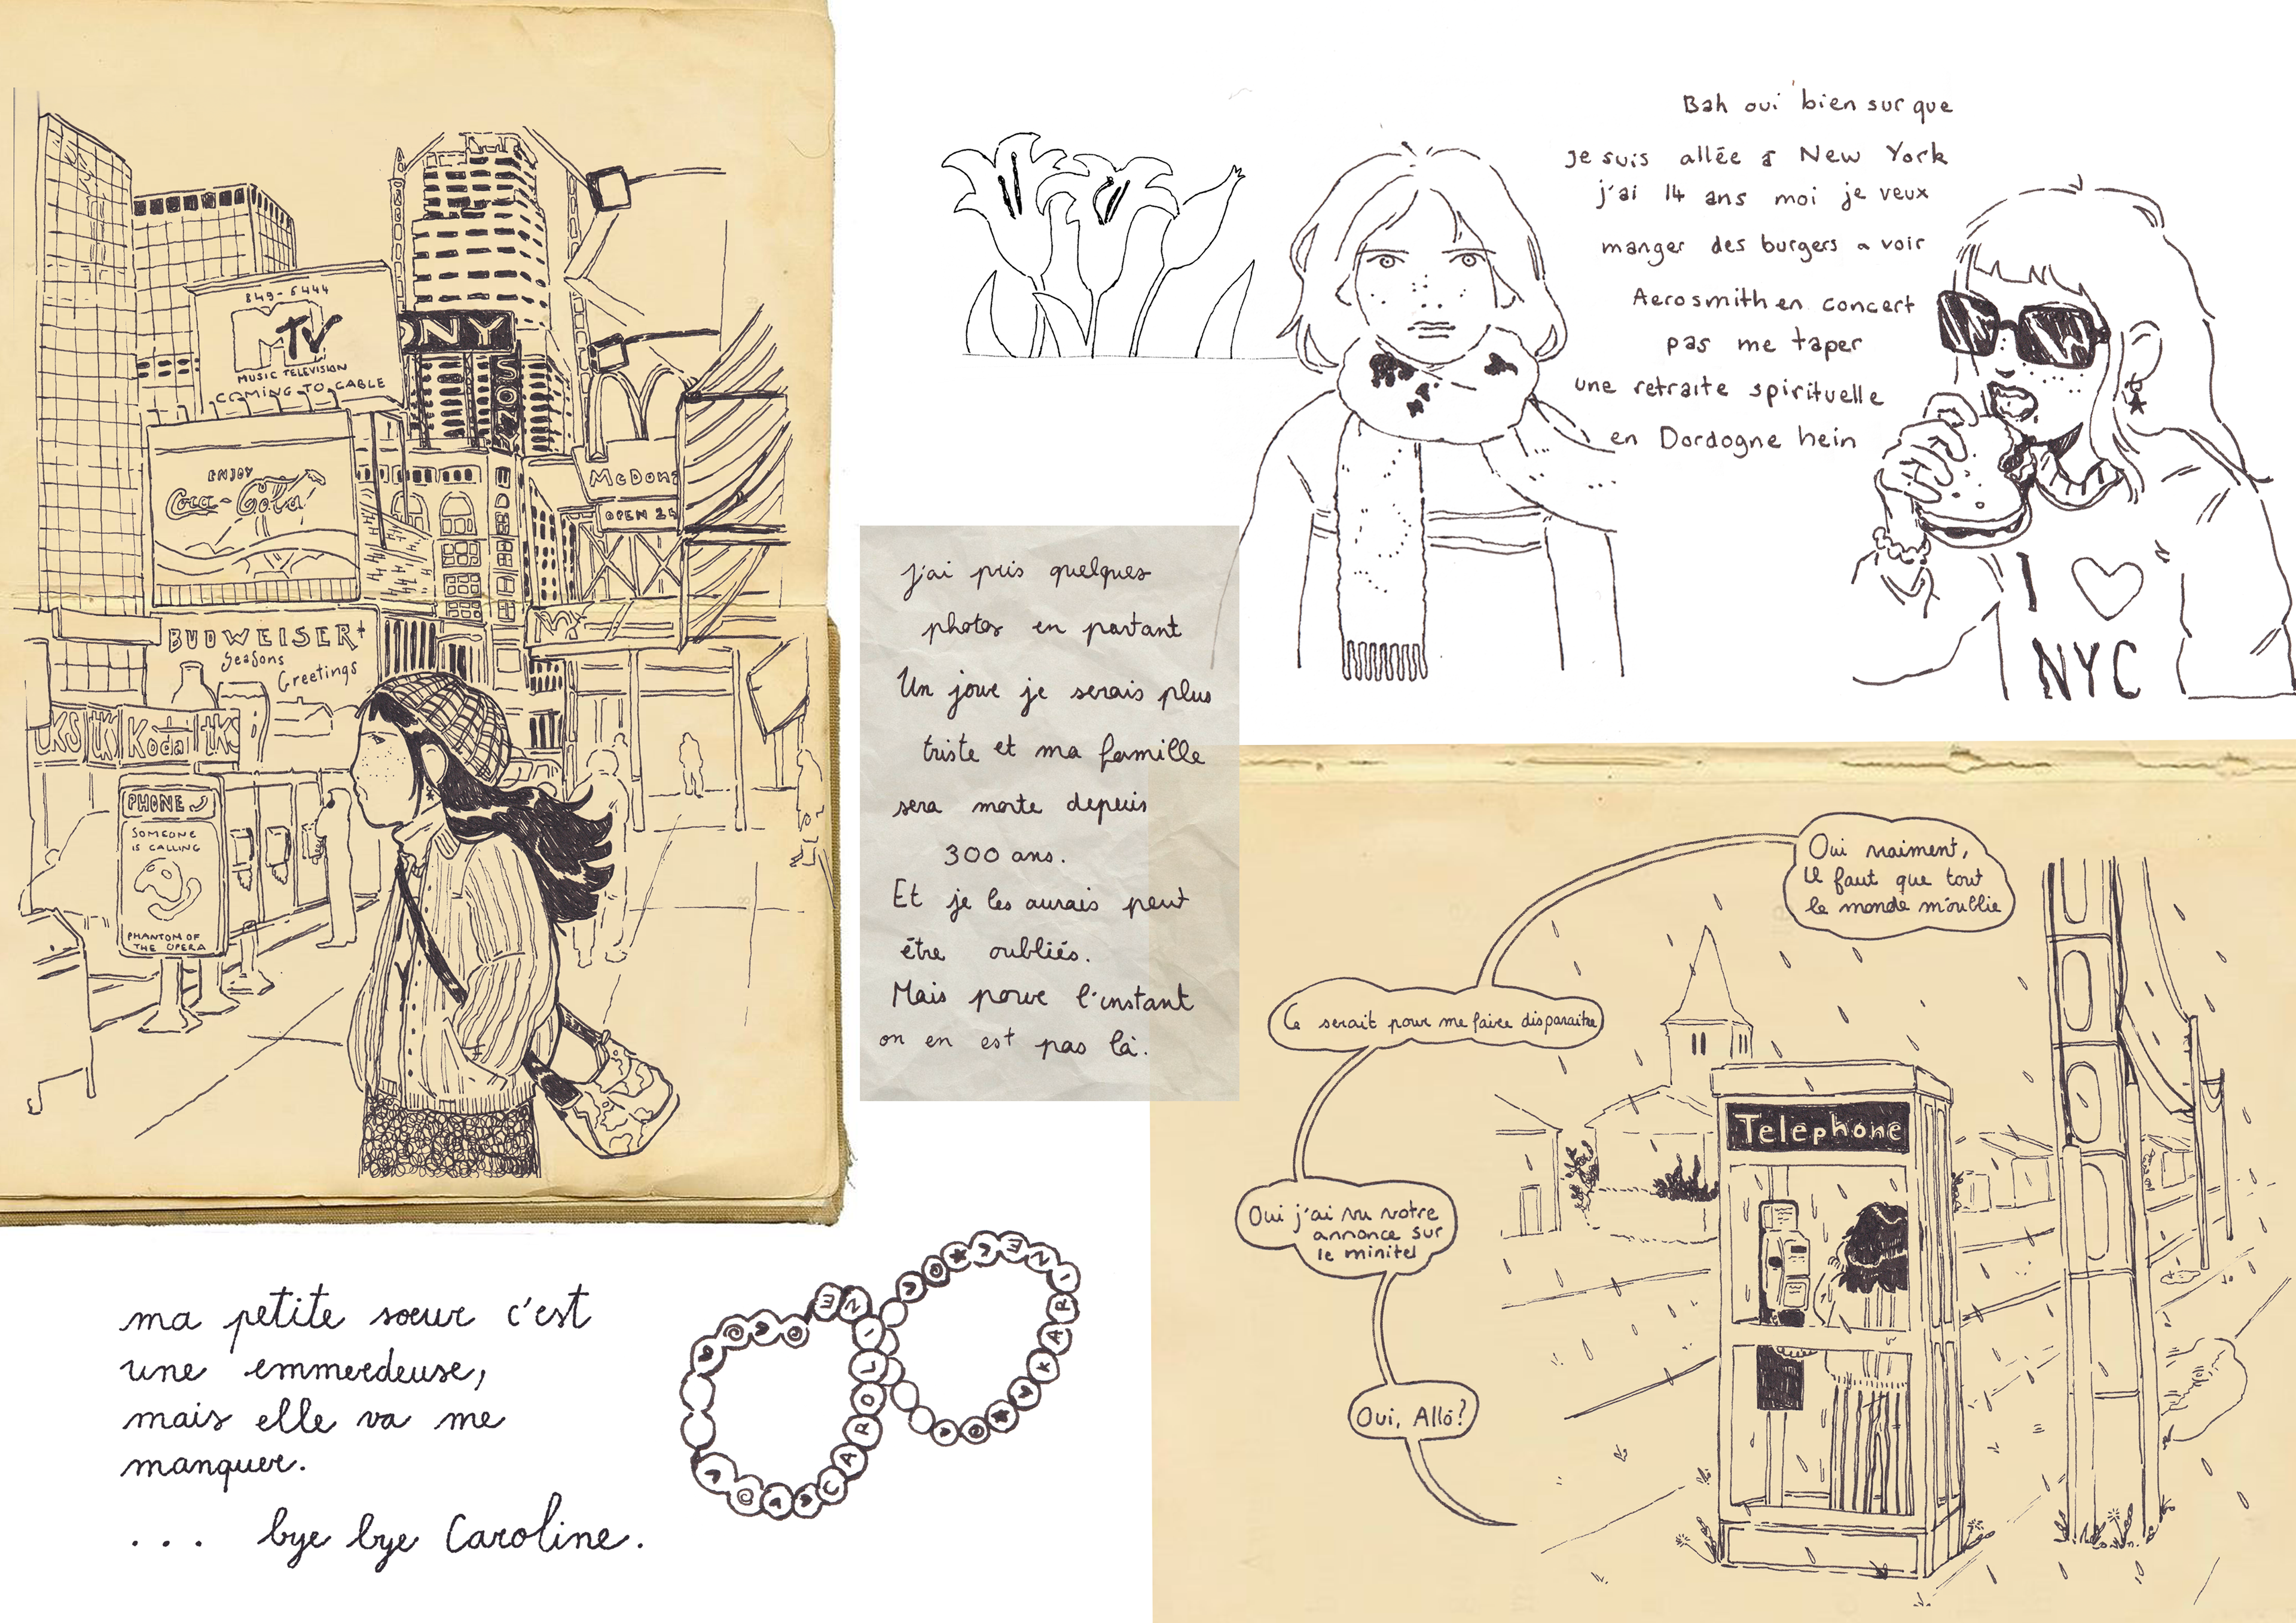 849-5444
MTV
MUSIC TELEVISION
COMING TO CABLE
ONY
SONY
ENJOY
Coca-Cola
McDona
OPEN 24
BUDWEISER
Seasons
Greetings
tKS tK Koda tKS
PHONE
SOMEONE
IS CALLING
PHANTOM OF
THE OPERA
Bah oui bien sur que
je suis allée à New York
j'ai 14 ans moi je veux
manger des burgers a voir
Aerosmith en concert
pas me taper
une retraite spirituelle
en Dordogne hein
I ♡
NYC
j'ai pris quelques
photos en partant
Un jour je serais plus
triste et ma famille
sera morte depuis
300 ans.
Et je les aurais peut
être oubliés.
Mais pour l'instant
on en est pas là.
Oui vraiment,
il faut que tout
le monde m'oublie
Ce serait pour me faire disparaitre
Oui j'ai vu votre
annonce sur
le minitel
Oui, Allô?
Telephone
ma petite sœur c'est
une emmerdeuse,
mais elle va me
manquer.
... bye bye Caroline.
CAROLINE
KARINE